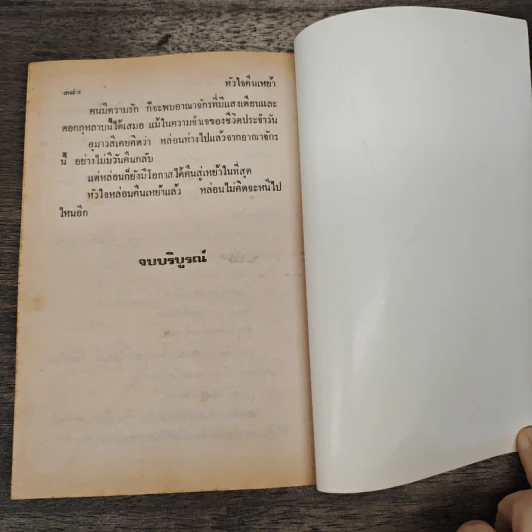 ๓๘๔
หัวใจคืนเหย้า
คนมีความรัก ก็จะพบอาณาจักรที่มีแสงเดือนและ
ดอกกุหลาบนี้ได้เสมอ แม้ในความจำเจของชีวิตประจำวัน
อุมาวสีเคยคิดว่า หล่อนห่างไปแล้วจากอาณาจักร
นี้ อย่างไม่มีวันคืนกลับ
แต่หล่อนก็ยังมีโอกาสได้คืนสู่เหย้าในที่สุด
หัวใจหล่อนคืนเหย้าแล้ว หล่อนไม่คิดจะหนีไป
ไหนอีก
จบบริบูรณ์